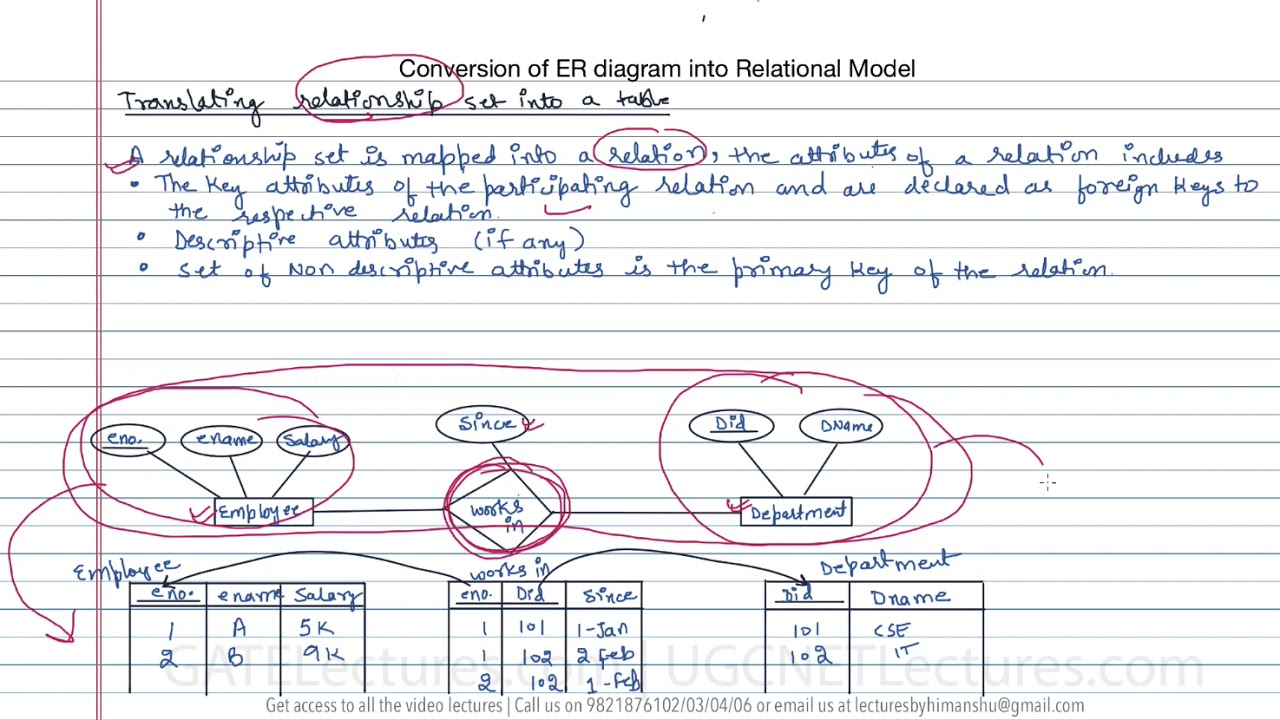 Conversion of ER diagram into Relational Model
Translating relationship set into a table
A relationship set is mapped into a relation, the attributes of a relation includes
• The key attributes of the participating relation and are declared as foreign keys to
the respective relation.
• Descriptive attributes (if any)
• Set of Non descriptive attributes is the primary key of the relation.
eno. ename Salary Since Did DName
Employee works in Department
Employee works in Department
eno. ename Salary eno. Did Since Did Dname
1 A 5K 1 101 1-Jan 101 CSE
2 B 9K 1 102 2 Feb 102 IT
2 102 1-Feb
GATELectures.com | UGCNETLectures.com
Get access to all the video lectures | Call us on 9821876102/03/04/06 or email us at lecturesbyhimanshu@gmail.com